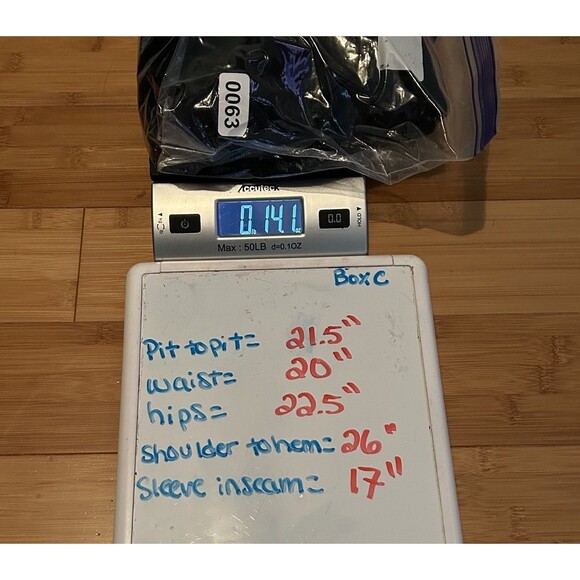 0063
Accuteck
0 lb 14.1 oz
0.0
HOLD ▼
Max : 50LB d=0.1OZ
Box C
Pit to pit= 21.5"
waist= 20"
hips= 22.5"
Shoulder to hem= 26"
Sleeve inseam= 17"